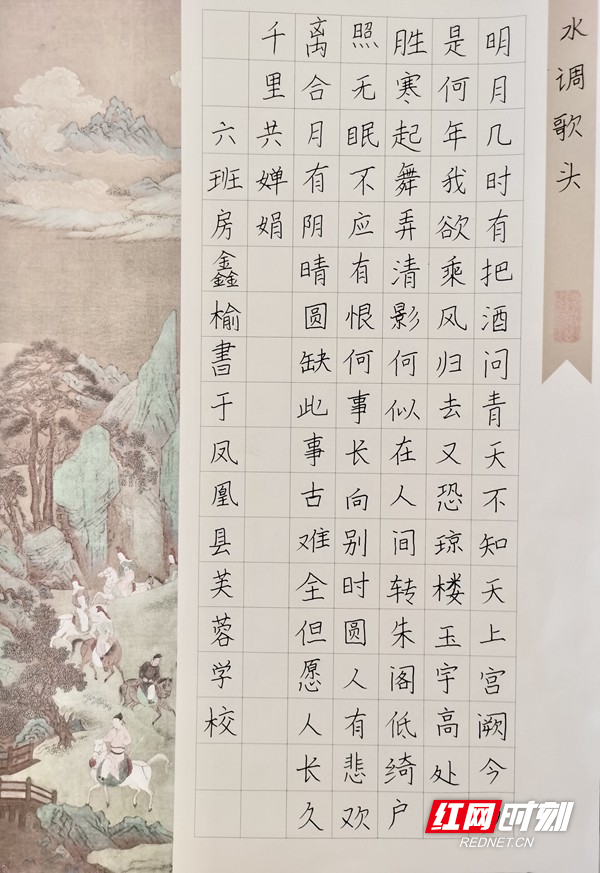 水调歌头
明月几时有把酒问青天不知天上宫阙今
是何年我欲乘风归去又恐琼楼玉宇高处
胜寒起舞弄清影何似在人间转朱阁低绮户
照无眠不应有恨何事长向别时圆人有悲欢
离合月有阴晴圆缺此事古难全但愿人长久
千里共婵娟
六班房鑫榆書于凤凰县芙蓉学校
红网时刻
REDNET.CN